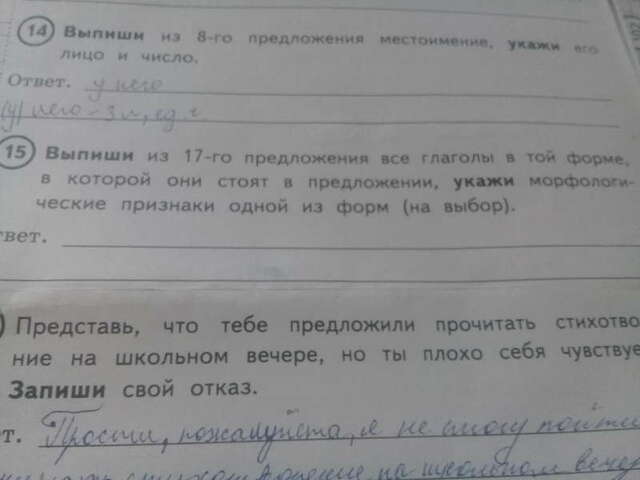 14 Выпиши из 8-го предложения местоимение, укажи его
лицо и число.
Ответ. у него
(у) него - 3 л, ед. ч
15 Выпиши из 17-го предложения все глаголы в той форме,
в которой они стоят в предложении, укажи морфологи-
ческие признаки одной из форм (на выбор).
твет.
) Представь, что тебе предложили прочитать стихотво
ние на школьном вечере, но ты плохо себя чувствуе
Запиши свой отказ.
ет. Прости, пожалуйста, я не смогу пойти
на школьном вечер